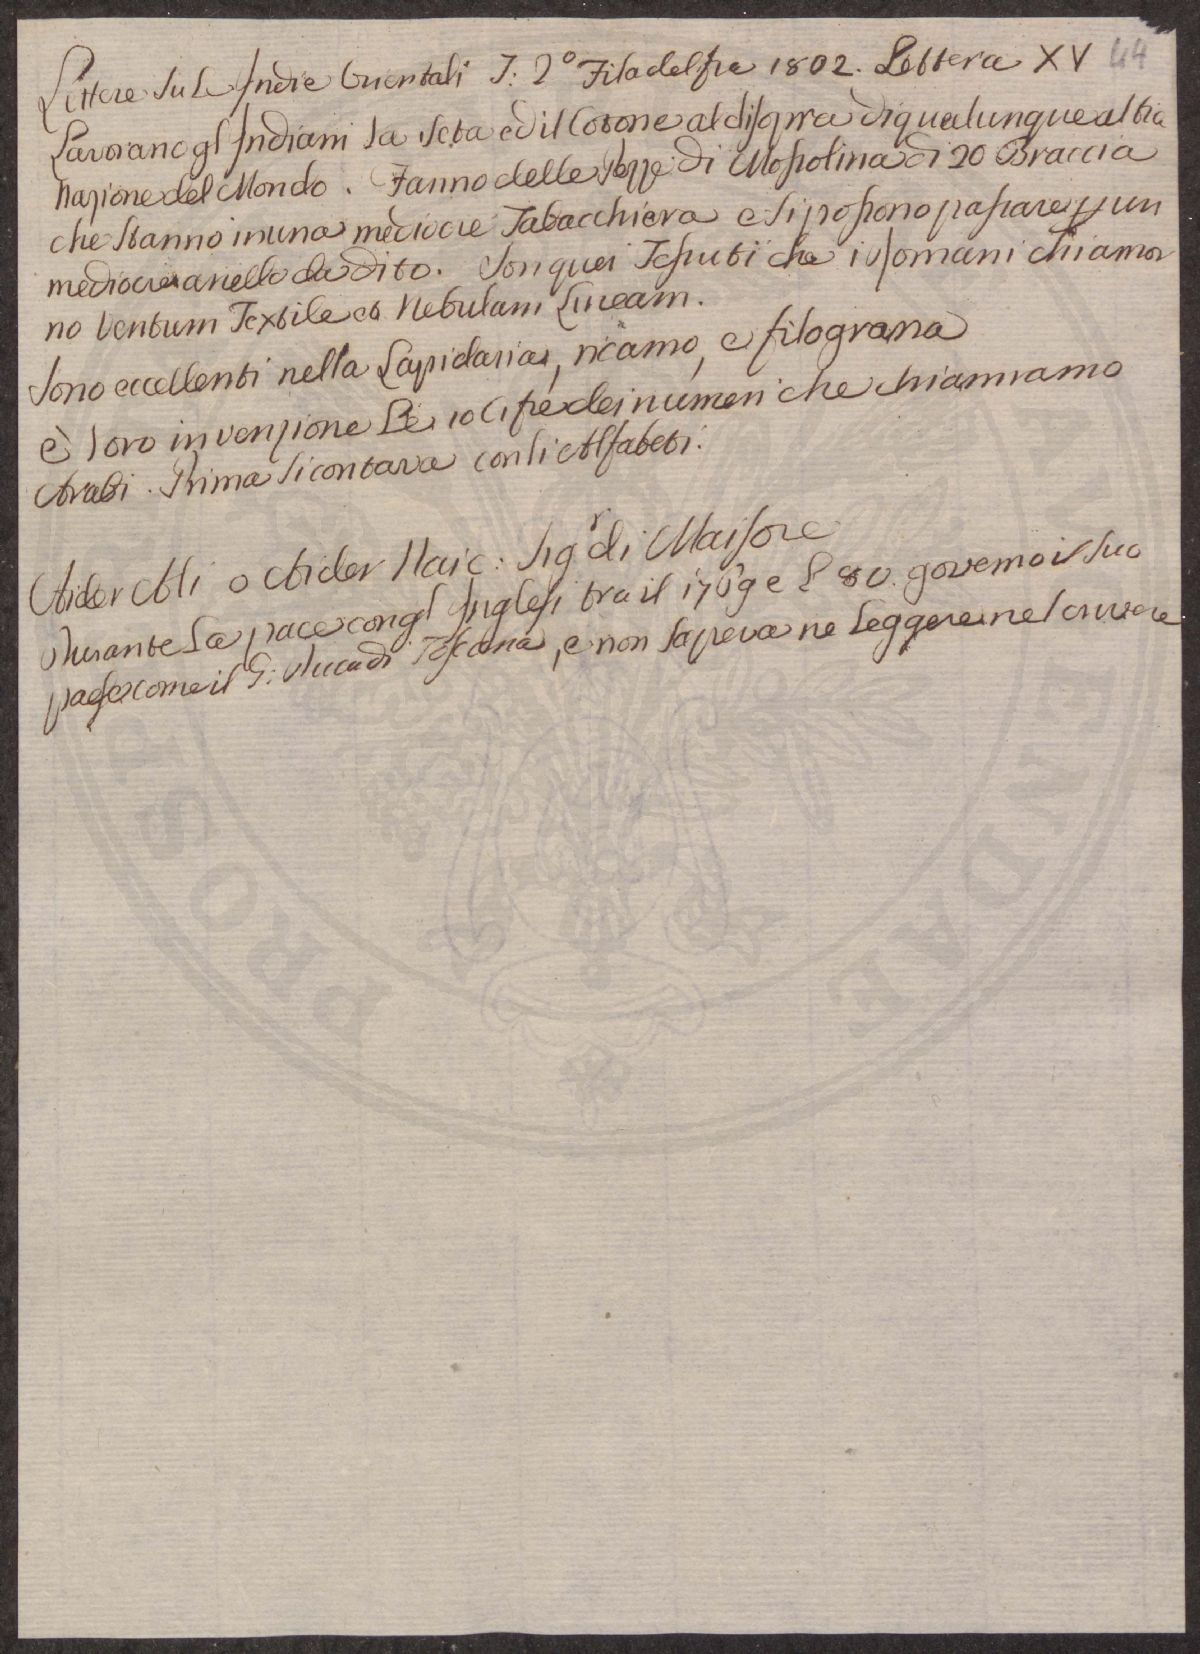 Lettere su le Indie Orientali T: 2° Filadelfia 1802. Lettera XV 44
Lavorano gl'Indiani la seta ed il Cotone al disopra di qualunque altra
Nazione del Mondo. Fanno delle Pezze di Mossolina di 20 Braccia
che stanno in una mediocre Tabacchiera e si possono passare p un
mediocre anello da dito. Son quei Tessuti che i Romani chiama
no Ventum Textile et Nebulam Lineam.
Sono eccellenti nella Lapidaria, ricamo, e filograna
è loro invenzione Le 10 Cifre dei numeri che chiamiamo
Arabi. Prima si contava con li Alfabeti.
Aider Ali o Aider Naic: Sig.r di Maisore
Durante La pace congl'Inglesi tra il 1769 e L'80. governò il suo
paese come il G: Duca di Toscana, e non sapeva ne Leggere ne scrivere
PROSPI VENDAE